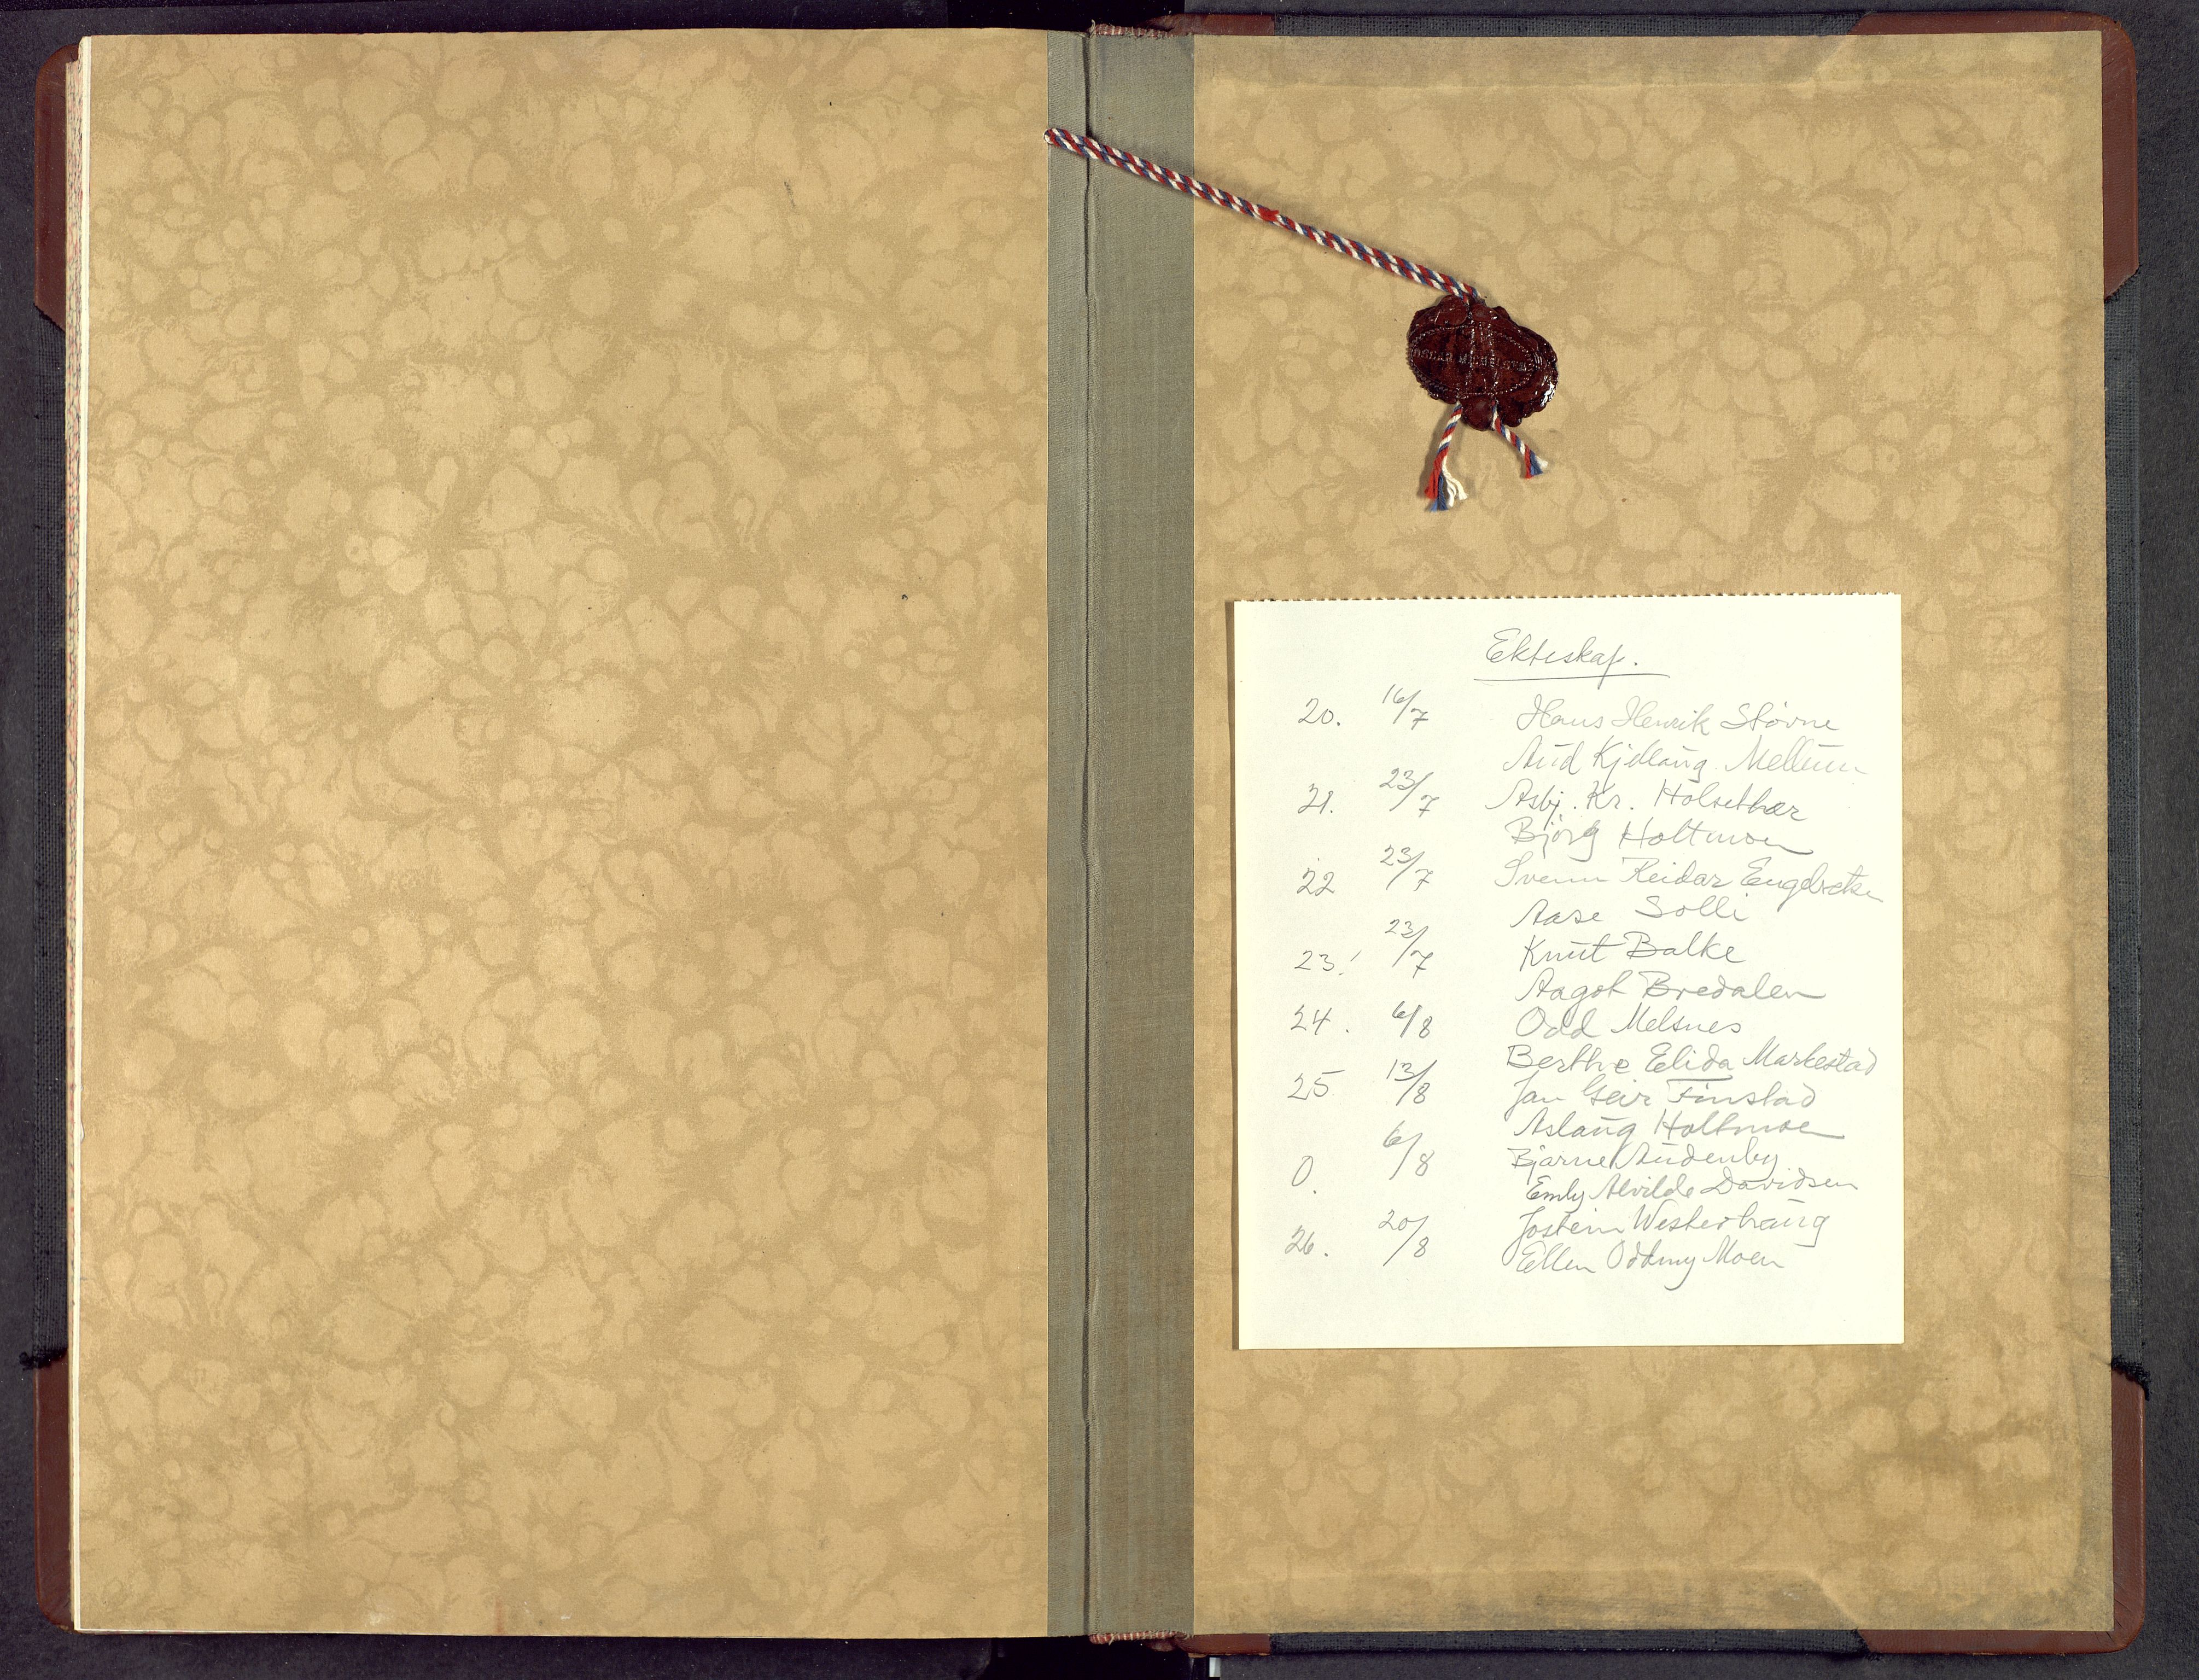 Ekteskap.
20. 16/7 Hans Henrik Støvne
Aud Kjellaug Mellum
21. 23/7 Asbj. Kr. Holsethær
Bjørg Holtmoen
22 23/7 Svenn Reidar Engebretsen
Aase Solli
23. 23/7 Knut Balke
Aagot Bredalen
24. 6/8 Odd Melsnes
Berthe Elida Markestad
25 13/8 Jan Geir Finstad
Aslaug Holtmoen
0. 6/8 Bjarne Audenby
Emly Alvilde Davidsen
26. 20/8 Jostein Westerhaug
Ellen Oddny Moen